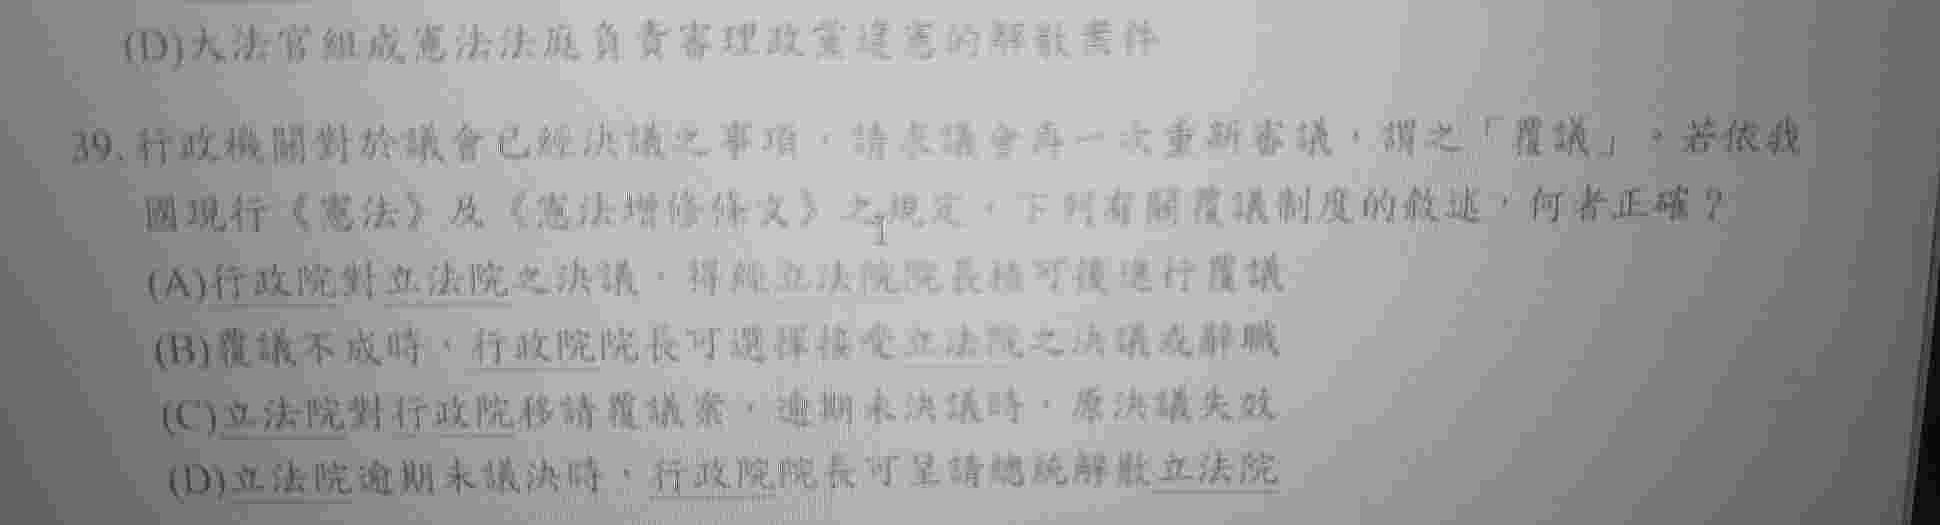 (D)大法官組成憲法法庭負責審理政黨違憲的解散案件
39. 行政機關對於議會已經決議之事項，請求議會再一次重新審議，謂之「覆議」。若依我
國現行《憲法》及《憲法增修條文》之規定，下列有關覆議制度的敘述，何者正確？
(A)行政院對立法院之決議，得經立法院院長核可後進行覆議
(B)覆議不成時，行政院院長可選擇接受立法院之決議或辭職
(C)立法院對行政院移請覆議案，逾期未決議時，原決議失效
(D)立法院逾期未議決時，行政院院長可呈請總統解散立法院